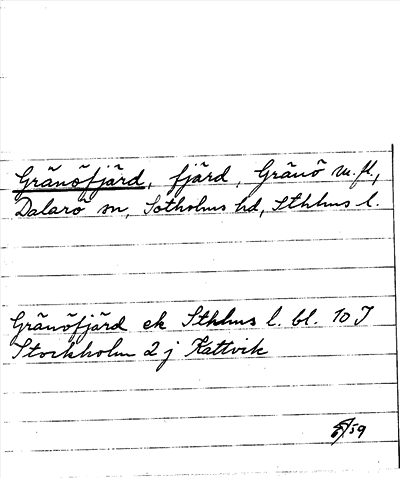 Gränöfjärd, fjärd, Gränö m.fl,
Dalarö sn, Sotholms hd, Sthlms l.
Gränöfjärd ek Sthlms l. bl. 10 J
Stockholm 2 j Kattvik
/59